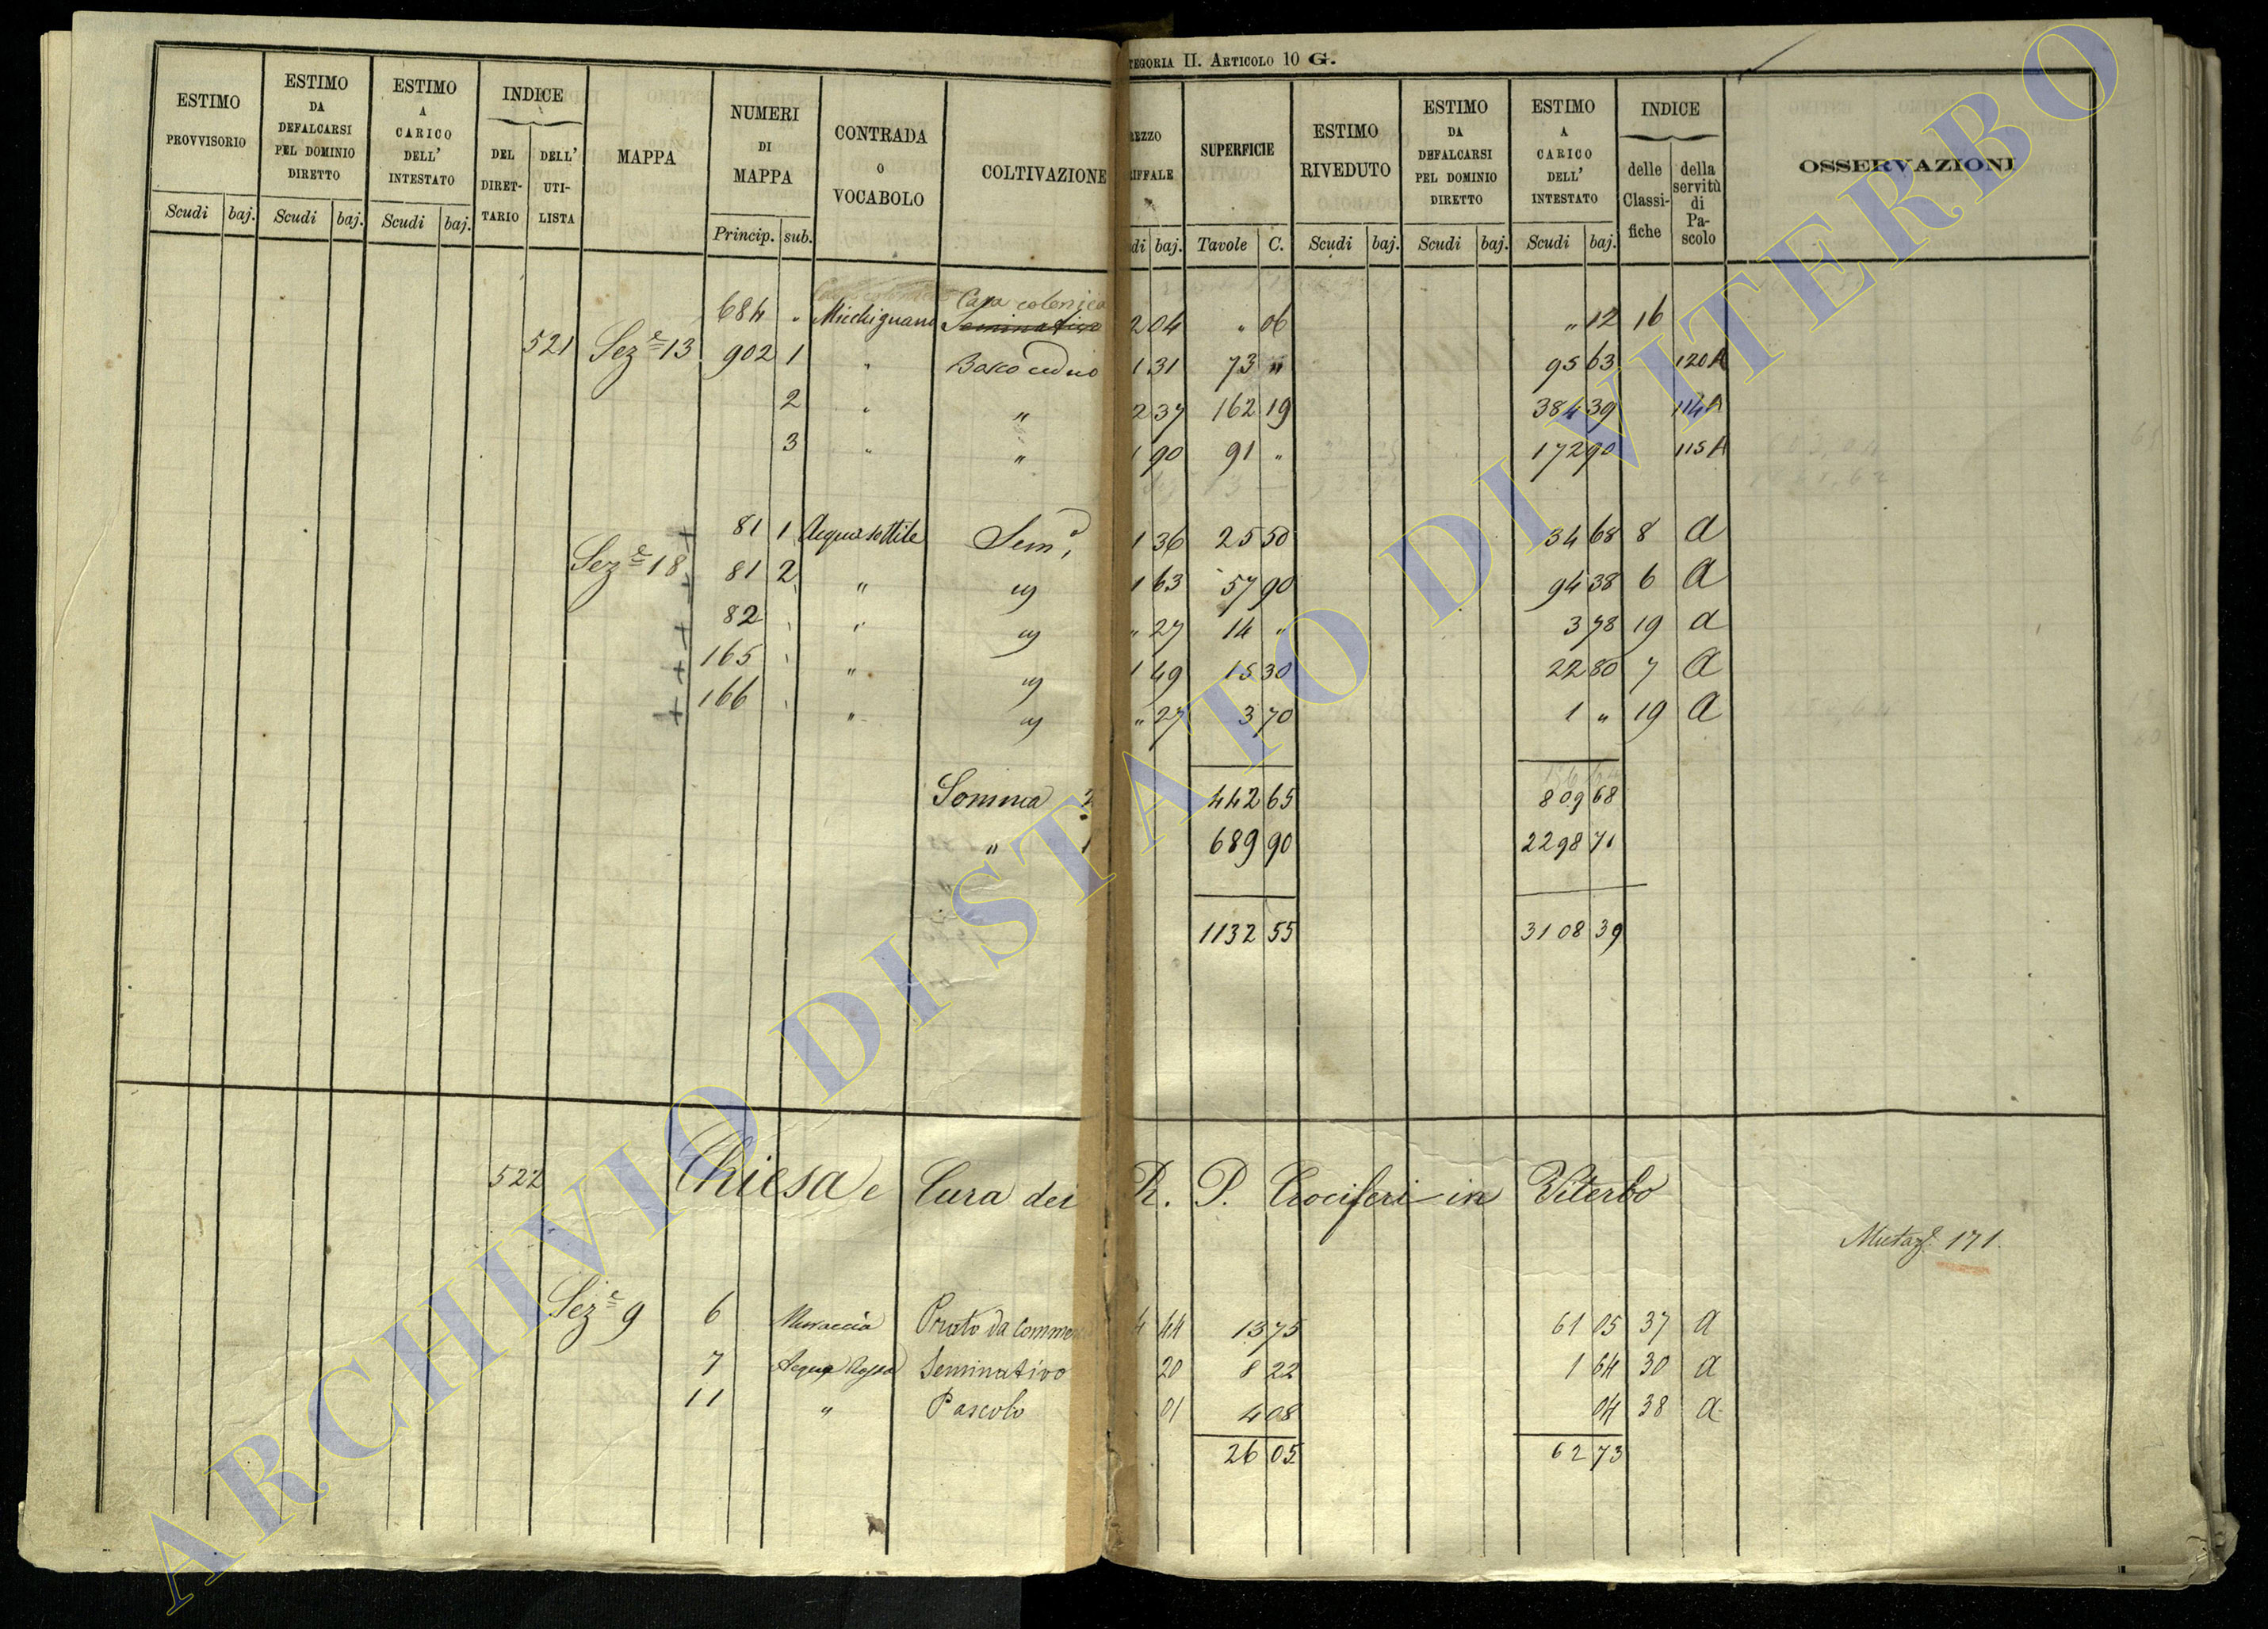 TEGORIA II. ARTICOLO 10 G.
ESTIMO PROVVISORIO Scudi baj.
ESTIMO DA DEFALCARSI PEL DOMINIO DIRETTO Scudi baj.
ESTIMO A CARICO DELL' INTESTATO Scudi baj.
INDICE DEL DIRET-TARIO DELL' UTI-LISTA
MAPPA
NUMERI DI MAPPA Princip. sub.
CONTRADA O VOCABOLO
COLTIVAZIONE
REZZO RIFFALE di baj.
SUPERFICIE Tavole C.
ESTIMO RIVEDUTO Scudi baj.
ESTIMO DA DEFALCARSI PEL DOMINIO DIRETTO Scudi baj.
ESTIMO A CARICO DELL' INTESTATO Scudi baj.
INDICE delle Classi-fiche della servitù di Pa-scolo
OSSERVAZIONI
Casa colonica
684 " Micchignano Seminativo 2 04 " 06 " 12 16
521 Sez.e 13 902 1 " Bosco ceduo 1 31 73 " 95 63 120 A
2 " " 2 37 162 19 384 39 114 A
3 " " 1 90 91 " 172 90 115 A
81 1 Acqua sottile Sem.o 1 36 25 50 34 68 8 a
Sez.e 18 81 2 " " 1 63 57 90 94 38 6 a
82 " " " 27 14 " 3 78 19 a
165 " " 1 49 15 30 22 80 7 a
166 " " " 27 3 70 1 " 19 a
Somma 2 442 65 809 68
" 1 689 90 2298 71
1132 55 3108 39
522 Chiesa e Cura dei R. P. Crociferi in Viterbo
Mutaz. 171.
Sez.e 9 6 Muraccia Prato da commercio 4 44 13 75 61 05 37 a
7 Acqua Rossa Seminativo 20 8 22 1 64 30 a
11 " Pascolo 01 4 08 04 38 a
26 05 62 73
ARCHIVIO DI STATO DI VITERBO